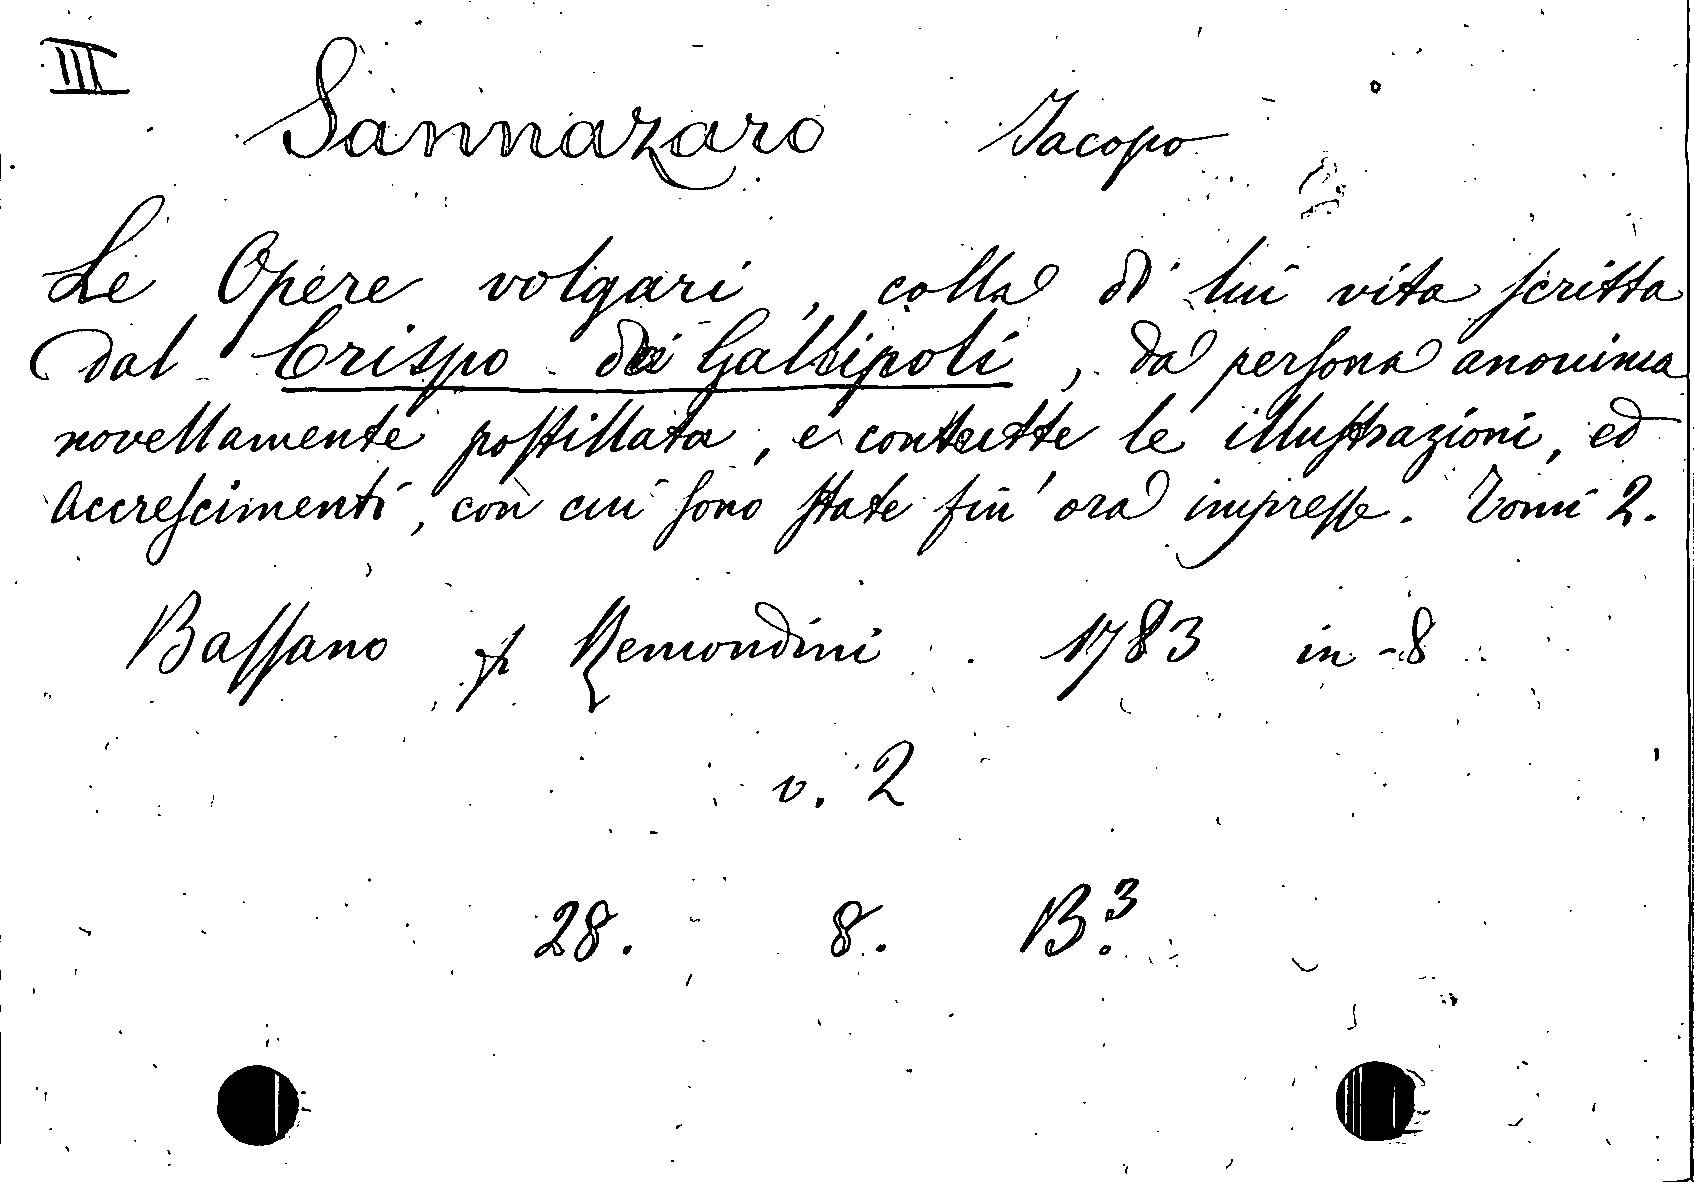 III
Sannazaro Jacopo
Le Opere volgari, colla di lui vita scritta
dal Crispo da Gallipoli, da persona anonima
novellamente postillata, e contutte le illustrazioni, ed
accrescimenti, con cui sono state fin' ora impresse. Tomi 2.
Bassano p Remondini . 1783 in-8
v. 2
28. 8. B.3